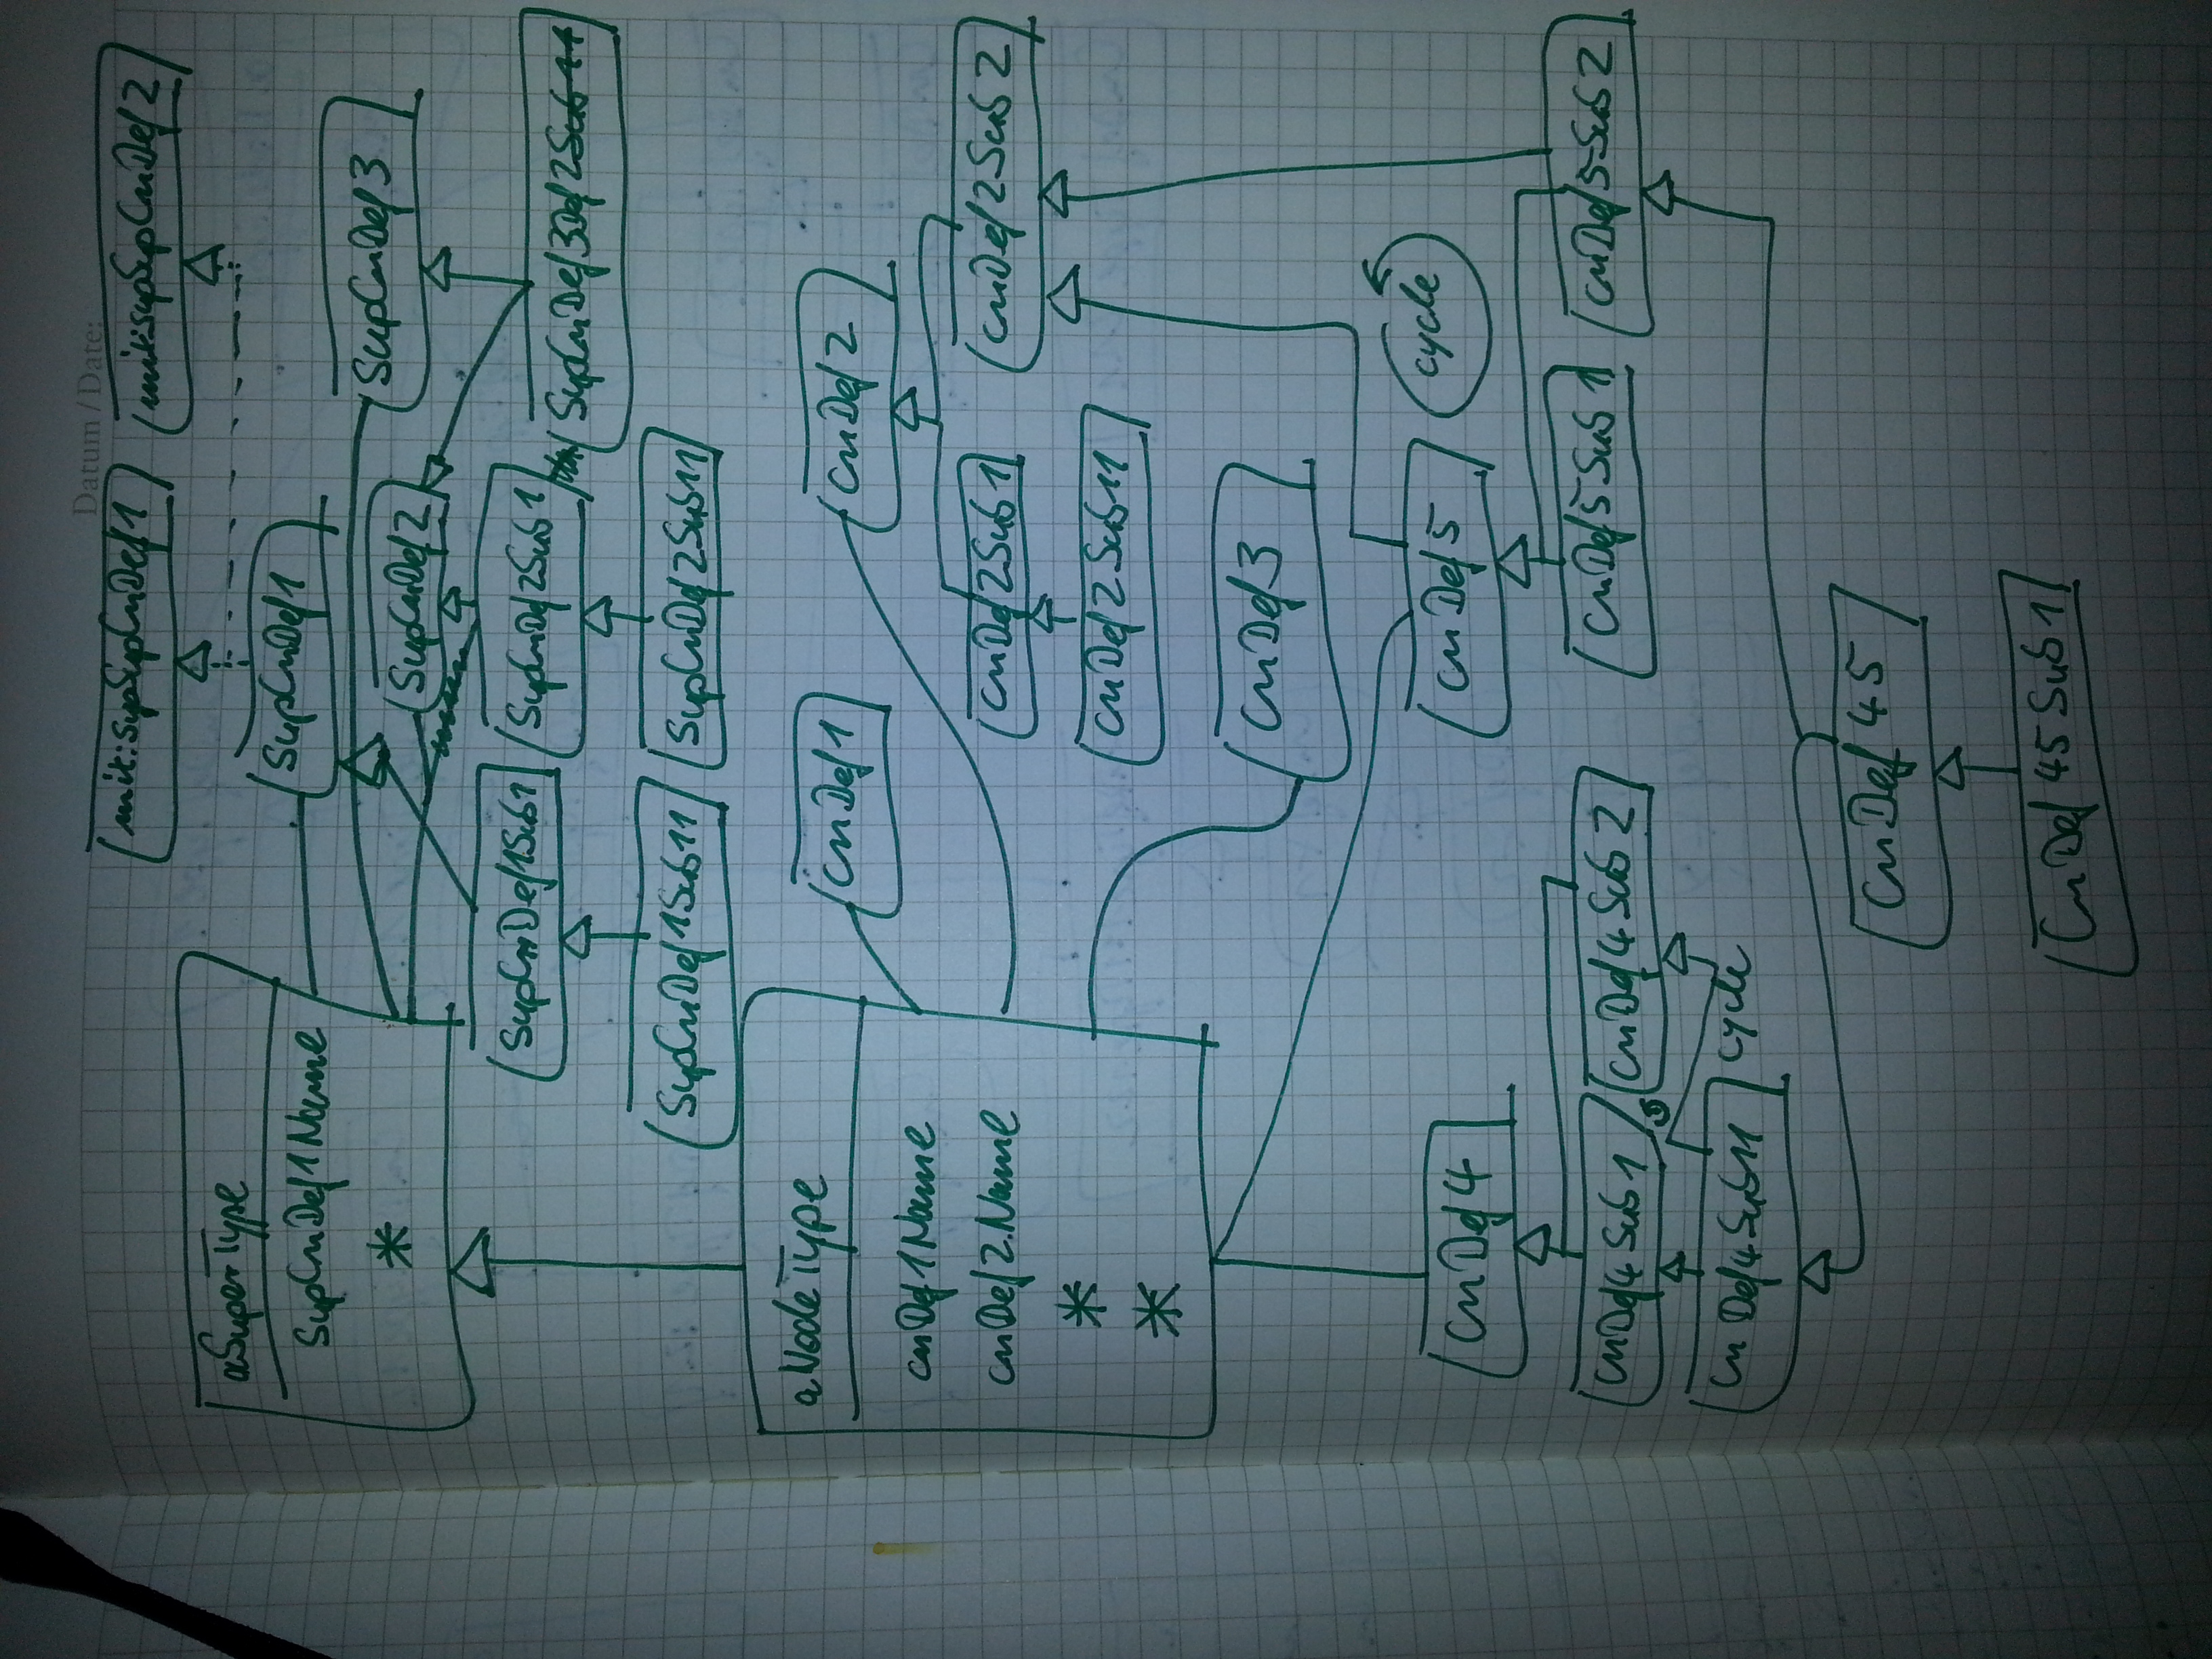 Datum / Date:
mix:supSupCnDef1
mix:supSupCnDef2
aSuperType
SupCnDef1Name
*
SupCnDef1
SupCnDef3
SupCnDef2
SupCnDef1Sub1
SupCnDef2Sub1
SupCnDef3Def2
SupCnDef1Sub11
SupCnDef2Sub11
aNodeType
cnDef1Name
cnDef2Name
*
*
cnDef1
cnDef2
cnDef2Sub1
cnDef2Sub2
cnDef2Sub11
cnDef3
cnDef4
cnDef5
cycle
cnDef4Sub1
cnDef4Sub2
cnDef5Sub1
cnDef5Sub2
cnDef4Sub11
cycle
cnDef45
cnDef45Sub1